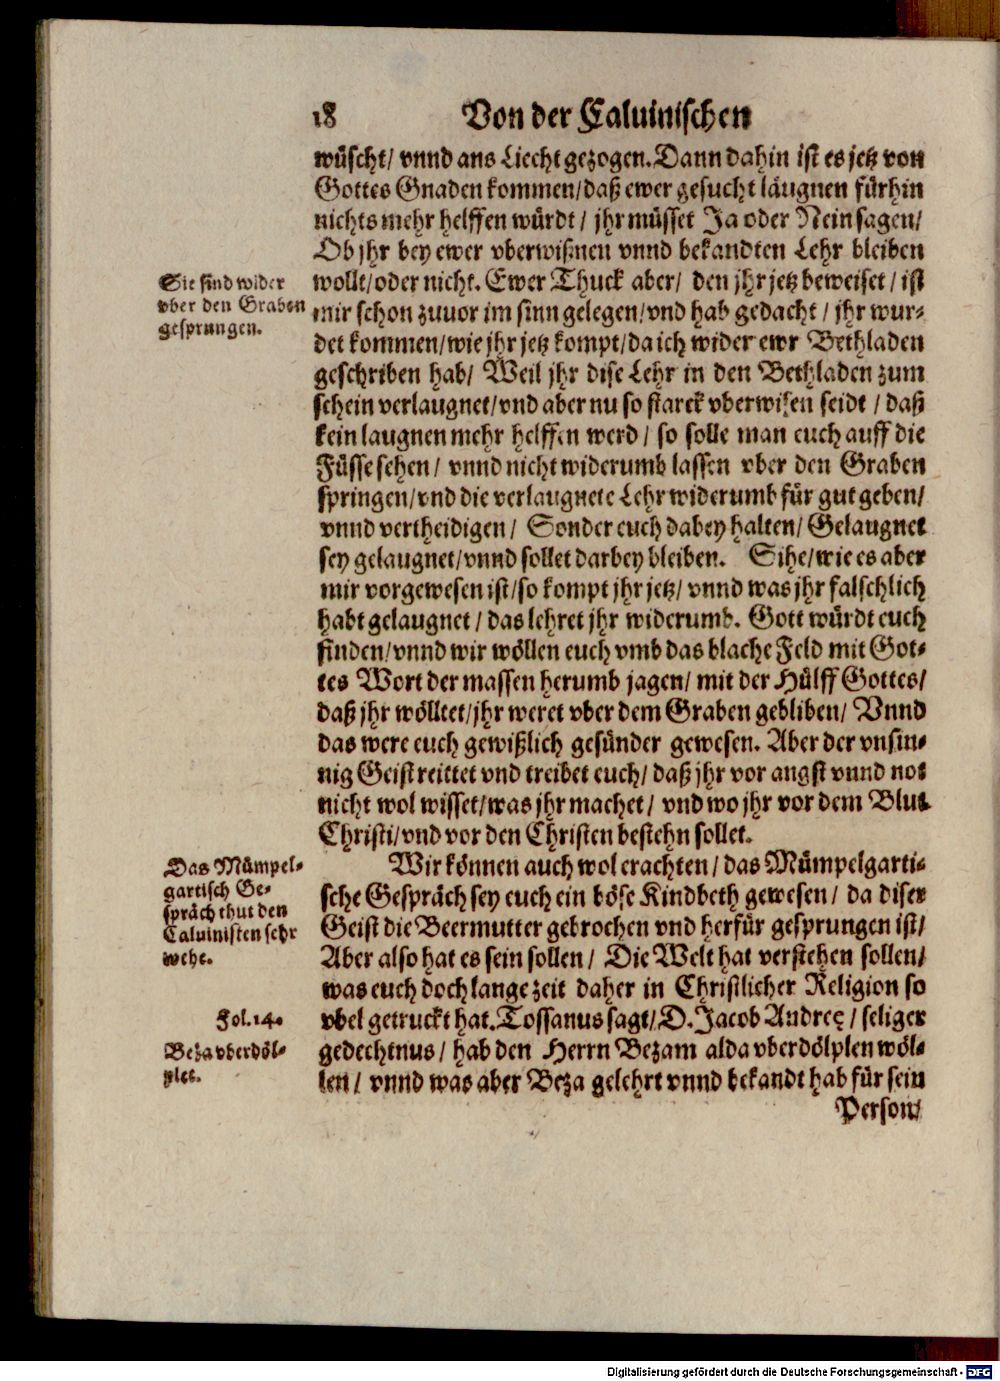 18 Von der Caluinischen
wüscht/ vnnd ans Liecht gezogen. Dann dahin ist es jetz von
Gottes Gnaden kommen/ daß ewer gesucht läugnen fürhin
nichts mehr helffen würdt/ jhr müsset Ja oder Nein sagen/
Ob jhr bey ewer vberwißnen vnnd bekandten Lehr bleiben
wollt/ oder nicht. Ewer Thuck aber/ den jhr jetz beweiset/ ist
mir schon zuuor im sinn gelegen/ vnd hab gedacht/ jhr wur-
det kommen/ wie jhr jetz kompt/ da ich wider ewr Bethladen
geschriben hab/ Weil jhr dise Lehr in den Bethladen zum
schein verlaugnet/ vnd aber nu so starck vberwisen seidt/ daß
kein laugnen mehr helffen werd/ so solle man euch auff die
Füsse sehen/ vnnd nicht widerumb lassen vber den Graben
springen/ vnd die verlaugnete Lehr widerumb für gut geben/
vnnd vertheidigen/ Sonder euch dabey halten/ Gelaugnet
sey gelaugnet/ vnnd sollet darbey bleiben. Sihe/ wie es aber
mir vorgewesen ist/ so kompt jhr jetz/ vnnd was jhr falschlich
habt gelaugnet/ das lehret jhr widerumb. Gott würdt euch
finden/ vnnd wir wöllen euch vmb das blache Feld mit Got-
tes Wort der massen herumb jagen/ mit der Hülff Gottes/
daß jhr wölltet/ jhr weret vber dem Graben gebliben/ Vnnd
das were euch gewißlich gesünder gewesen. Aber der vnsin-
nig Geist reittet vnd treibet euch/ daß jhr vor angst vnnd not
nicht wol wisset/ was jhr machet/ vnd wo jhr vor dem Blut
Christi/ vnd vor den Christen bestehn sollet.
Wir können auch wol erachten/ das Mümpelgarti-
sche Gespräch sey euch ein böse Kindbeth gewesen/ da diser
Geist die Beermutter gebrochen vnd herfür gesprungen ist/
Aber also hat es sein sollen/ Die Welt hat verstehen sollen/
was euch doch lange zeit daher in Christlicher Religion so
vbel getruckt hat. Tossanus sagt/ D. Jacob Andreę/ seliger
gedechtnus/ hab den Herrn Bezam alda vberdölplen wöl-
len/ vnnd was aber Beza gelehrt vnnd bekandt hab für sein
Person/
Sie sind wider
vber den Graben
gesprungen.
Das Mümpel-
gartisch Ge-
spräch thut den
Caluinisten sehr
wehe.
Fol. 14.
Beza vberdöl-
plet.
Digitalisierung gefördert durch die Deutsche Forschungsgemeinschaft - DFG